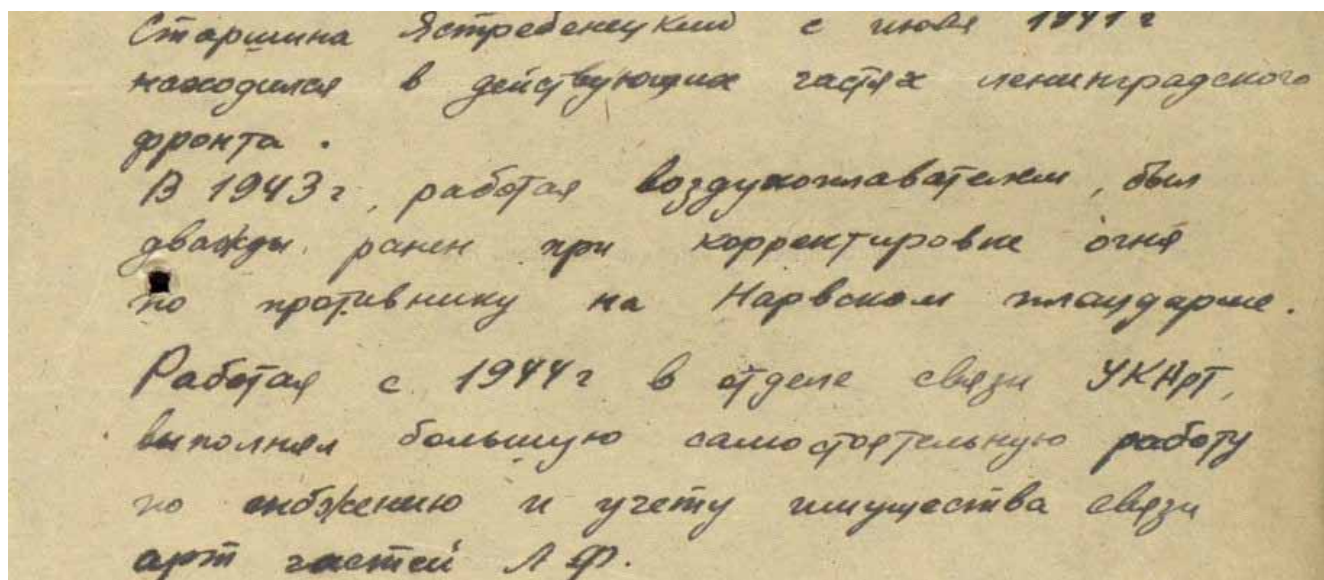 Старшина Ястребенецкий с июля 1941 г
находился в действующих частях ленинградского
фронта.
В 1943 г, работая воздухоплавателем, был
дважды ранен при корректировке огня
по противнику на Нарвском плацдарме.
Работая с 1944 г в отделе связи УКАрт,
выполнял большую самостоятельную работу
по снабжению и учету имущества связи
арт частей ЛФ.